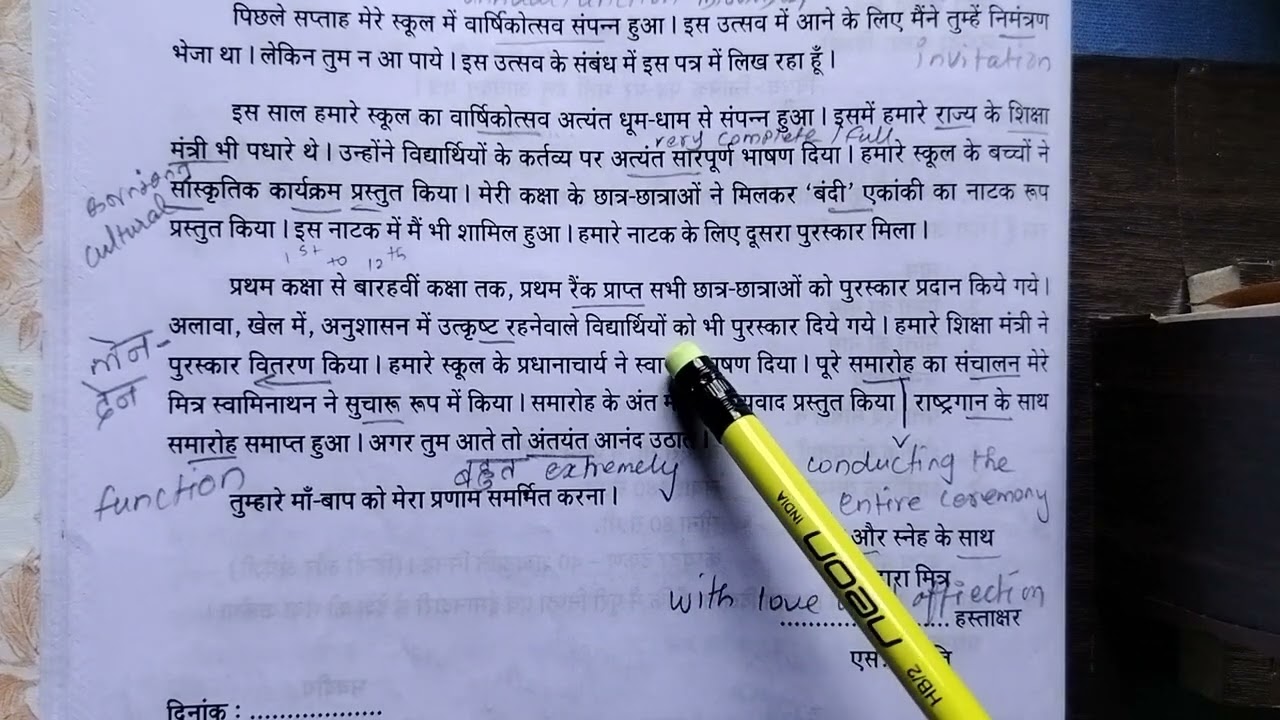 पिछले सप्ताह मेरे स्कूल में वार्षिकोत्सव संपन्न हुआ । इस उत्सव में आने के लिए मैंने तुम्हें निमंत्रण
भेजा था । लेकिन तुम न आ पाये । इस उत्सव के संबंध में इस पत्र में लिख रहा हूँ ।
invitation
इस साल हमारे स्कूल का वार्षिकोत्सव अत्यंत धूम-धाम से संपन्न हुआ । इसमें हमारे राज्य के शिक्षा
very complete / full
मंत्री भी पधारे थे । उन्होंने विद्यार्थियों के कर्तव्य पर अत्यंत सारपूर्ण भाषण दिया । हमारे स्कूल के बच्चों ने
सांस्कृतिक कार्यक्रम प्रस्तुत किया । मेरी कक्षा के छात्र-छात्राओं ने मिलकर ‘बंदी’ एकांकी का नाटक रूप
cultural
प्रस्तुत किया । इस नाटक में मैं भी शामिल हुआ । हमारे नाटक के लिए दूसरा पुरस्कार मिला ।
1st to 12th
प्रथम कक्षा से बारहवीं कक्षा तक, प्रथम रैंक प्राप्त सभी छात्र-छात्राओं को पुरस्कार प्रदान किये गये ।
अलावा, खेल में, अनुशासन में उत्कृष्ट रहनेवाले विद्यार्थियों को भी पुरस्कार दिये गये । हमारे शिक्षा मंत्री ने
लेन-
देन
पुरस्कार वितरण किया । हमारे स्कूल के प्रधानाचार्य ने दिया । पूरे समारोह का संचालन मेरे
मित्र स्वामिनाथन ने सुचारू रूप में किया । समारोह के अंत प्रस्तुत किया । राष्ट्रगान के साथ
समारोह समाप्त हुआ । अगर तुम आते तो अंतयंत आनंद ।
function
बहुत extremely
conducting the
entire ceremony
तुम्हारे माँ-बाप को मेरा प्रणाम समर्मित करना ।
और स्नेह के साथ
मित्र
with love affection
.................... हस्ताक्षर
एस.
दिनांक : ..................
NEON
INDIA
HB/2